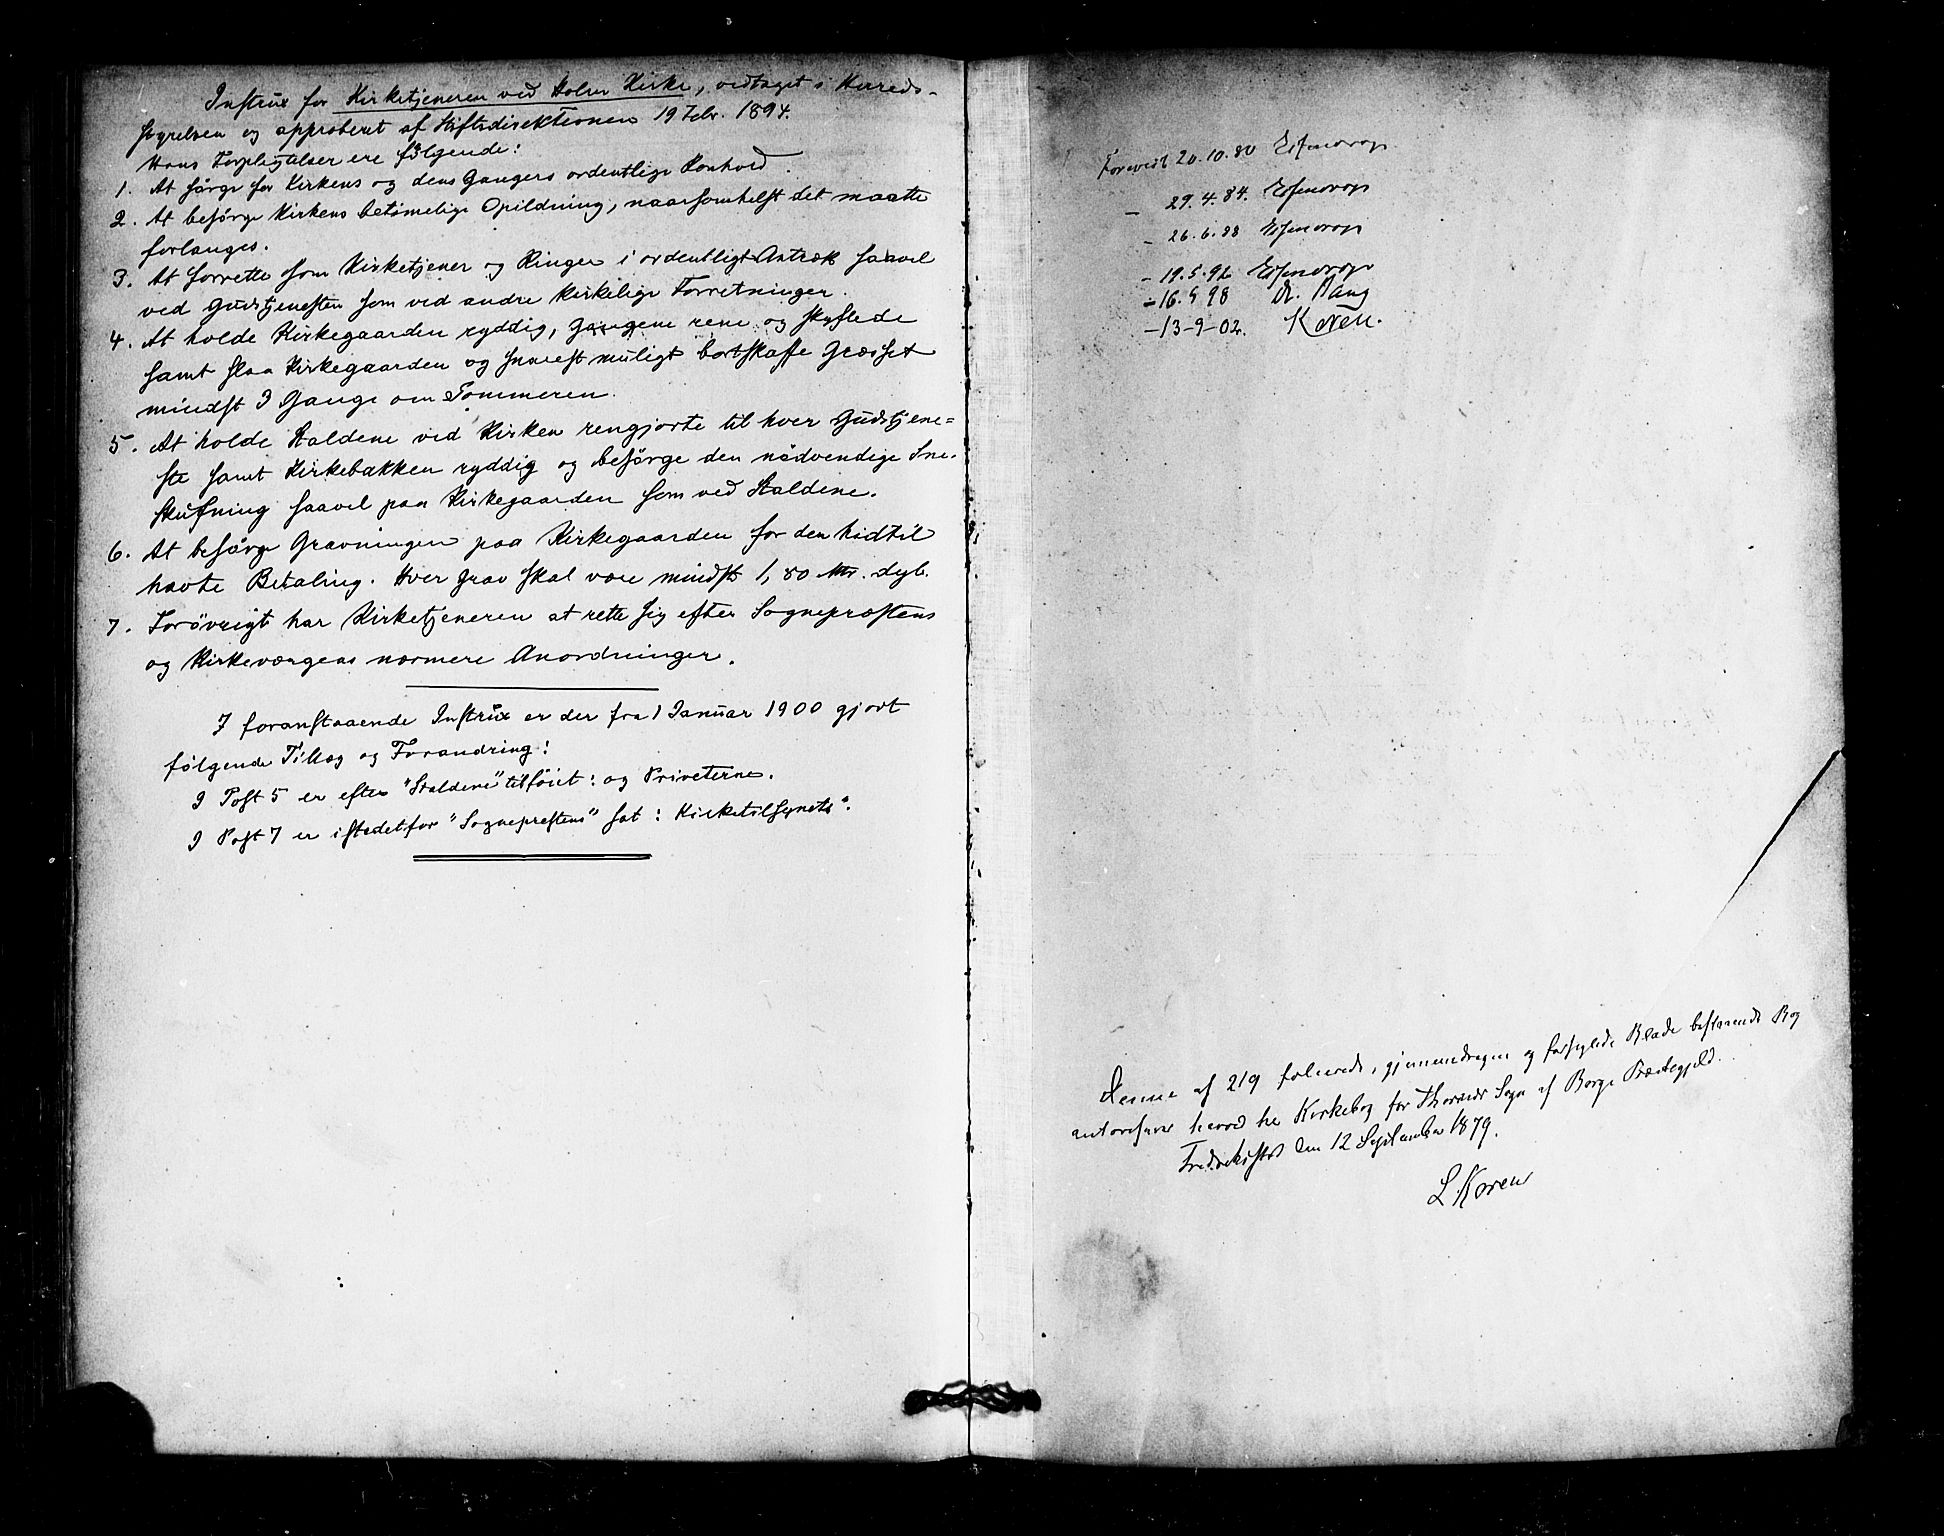 Instrux for Kirketjeneren ved Holen Kirke, vedtaget i Herreds-
styrelsen og approberet af Stiftsdirektionen 19 Febr. 1894.
Hans Forpligtelser ere følgende:
1. At sørge for Kirkens og dens Gangers ordentlige Renhold.
2. At besørge Kirkens betimelige Opildning, naarsomhelst det maatte
forlanges.
3. At forrette som Kirketjener og Ringer i ordentligt Antræk saavel
ved Gudstjenesten som ved andre kirkelige Forretninger.
4. At holde Kirkegaarden ryddig, Gangene rene og skuflede
samt slaa Kirkegaarden og snarest muligt bortskaffe Græsset
mindst 3 Gange om Sommeren.
5. At holde Staldene ved Kirken rengjorte til hver Gudstjene=
ste samt Kirkebakken ryddig og besørge den nødvendige Sne-
skufning saavel paa Kirkegaarden som ved Staldene.
6. At besørge Gravningen paa Kirkegaarden for den hidtil
havte Betaling. Hver Grav skal være mindst 1,80 Mtr. dyb.
7. Forøvrigt har Kirketjeneren at rette sig efter Sognepræstens
og Kirkeværgens nærmere Anordninger.
I foranstaaende Instrux er der fra 1 Januar 1900 gjort
følgende Tillæg og Forandring:
I Post 5 er efter "Staldene" tilføiet: og Priveterne.
I Post 7 er istedetfor "Sognepræstens" sat: Kirketilsynets".
Forevist 20.10.80 Esfendrop
- 29.4.84. Esfendrop
- 26.6.88 Esfendrop
- 19.5.92 Esfendrop
- 16.5 98 Bang
- 13-9-02. Koren.
Denne af 219 folierede, gjennemdragne og forseglede Blade bestaaende Bog
autoriseres herved til Kirkebog for Thorsnes Sogn af Borge Præstegjeld.
Fredrikstad den 12 September 1879.
L. Koren